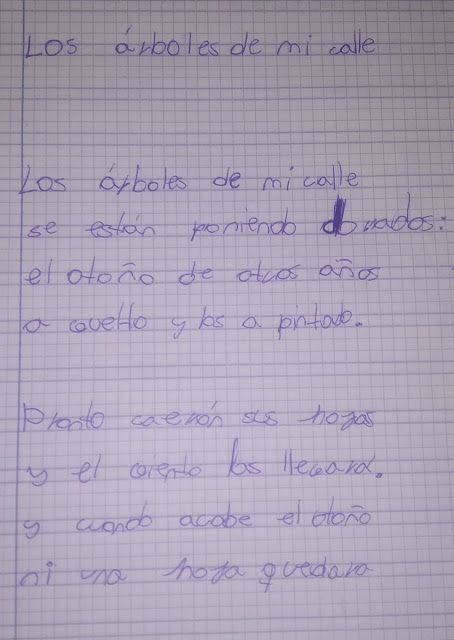 Los árboles de mi calle
Los árboles de mi calle
se están poniendo dorados:
el otoño de otros años
a vuelto y los a pintado.
Pronto caerán sus hogas
y el viento los llevara.
y cuando acabe el otoño
ni una hoga quedara